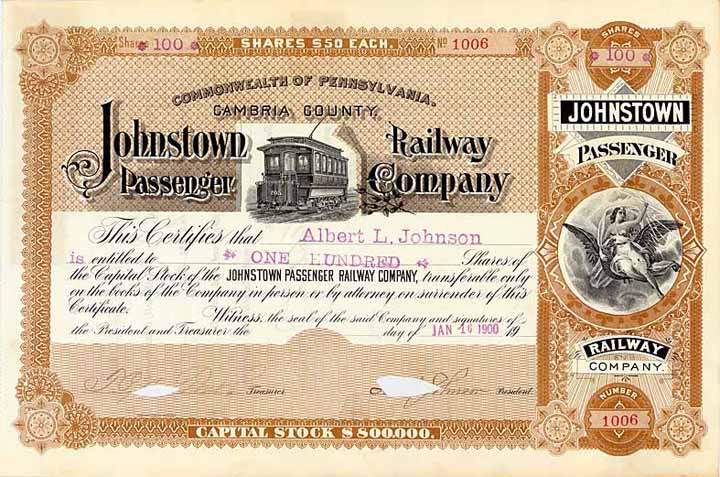 Shares * 100 * SHARES $50 EACH. No 1006
COMMONWEALTH OF PENNSYLVANIA.
CAMBRIA COUNTY.
Johnstown Railway
Passenger Company
This Certifies that Albert L. Johnson
is entitled to * ONE HUNDRED * Shares of
the Capital Stock of the JOHNSTOWN PASSENGER RAILWAY COMPANY, transferable only
on the books of the Company in person or by attorney on surrender of this
Certificate. Witness, the seal of the said Company and signatures of
the President and Treasurer the day of JAN 16 1900 19
Treasurer President.
CAPITAL STOCK $800,000.
SHARES
* 100 *
JOHNSTOWN
PASSENGER
RAILWAY
COMPANY.
NUMBER
1006